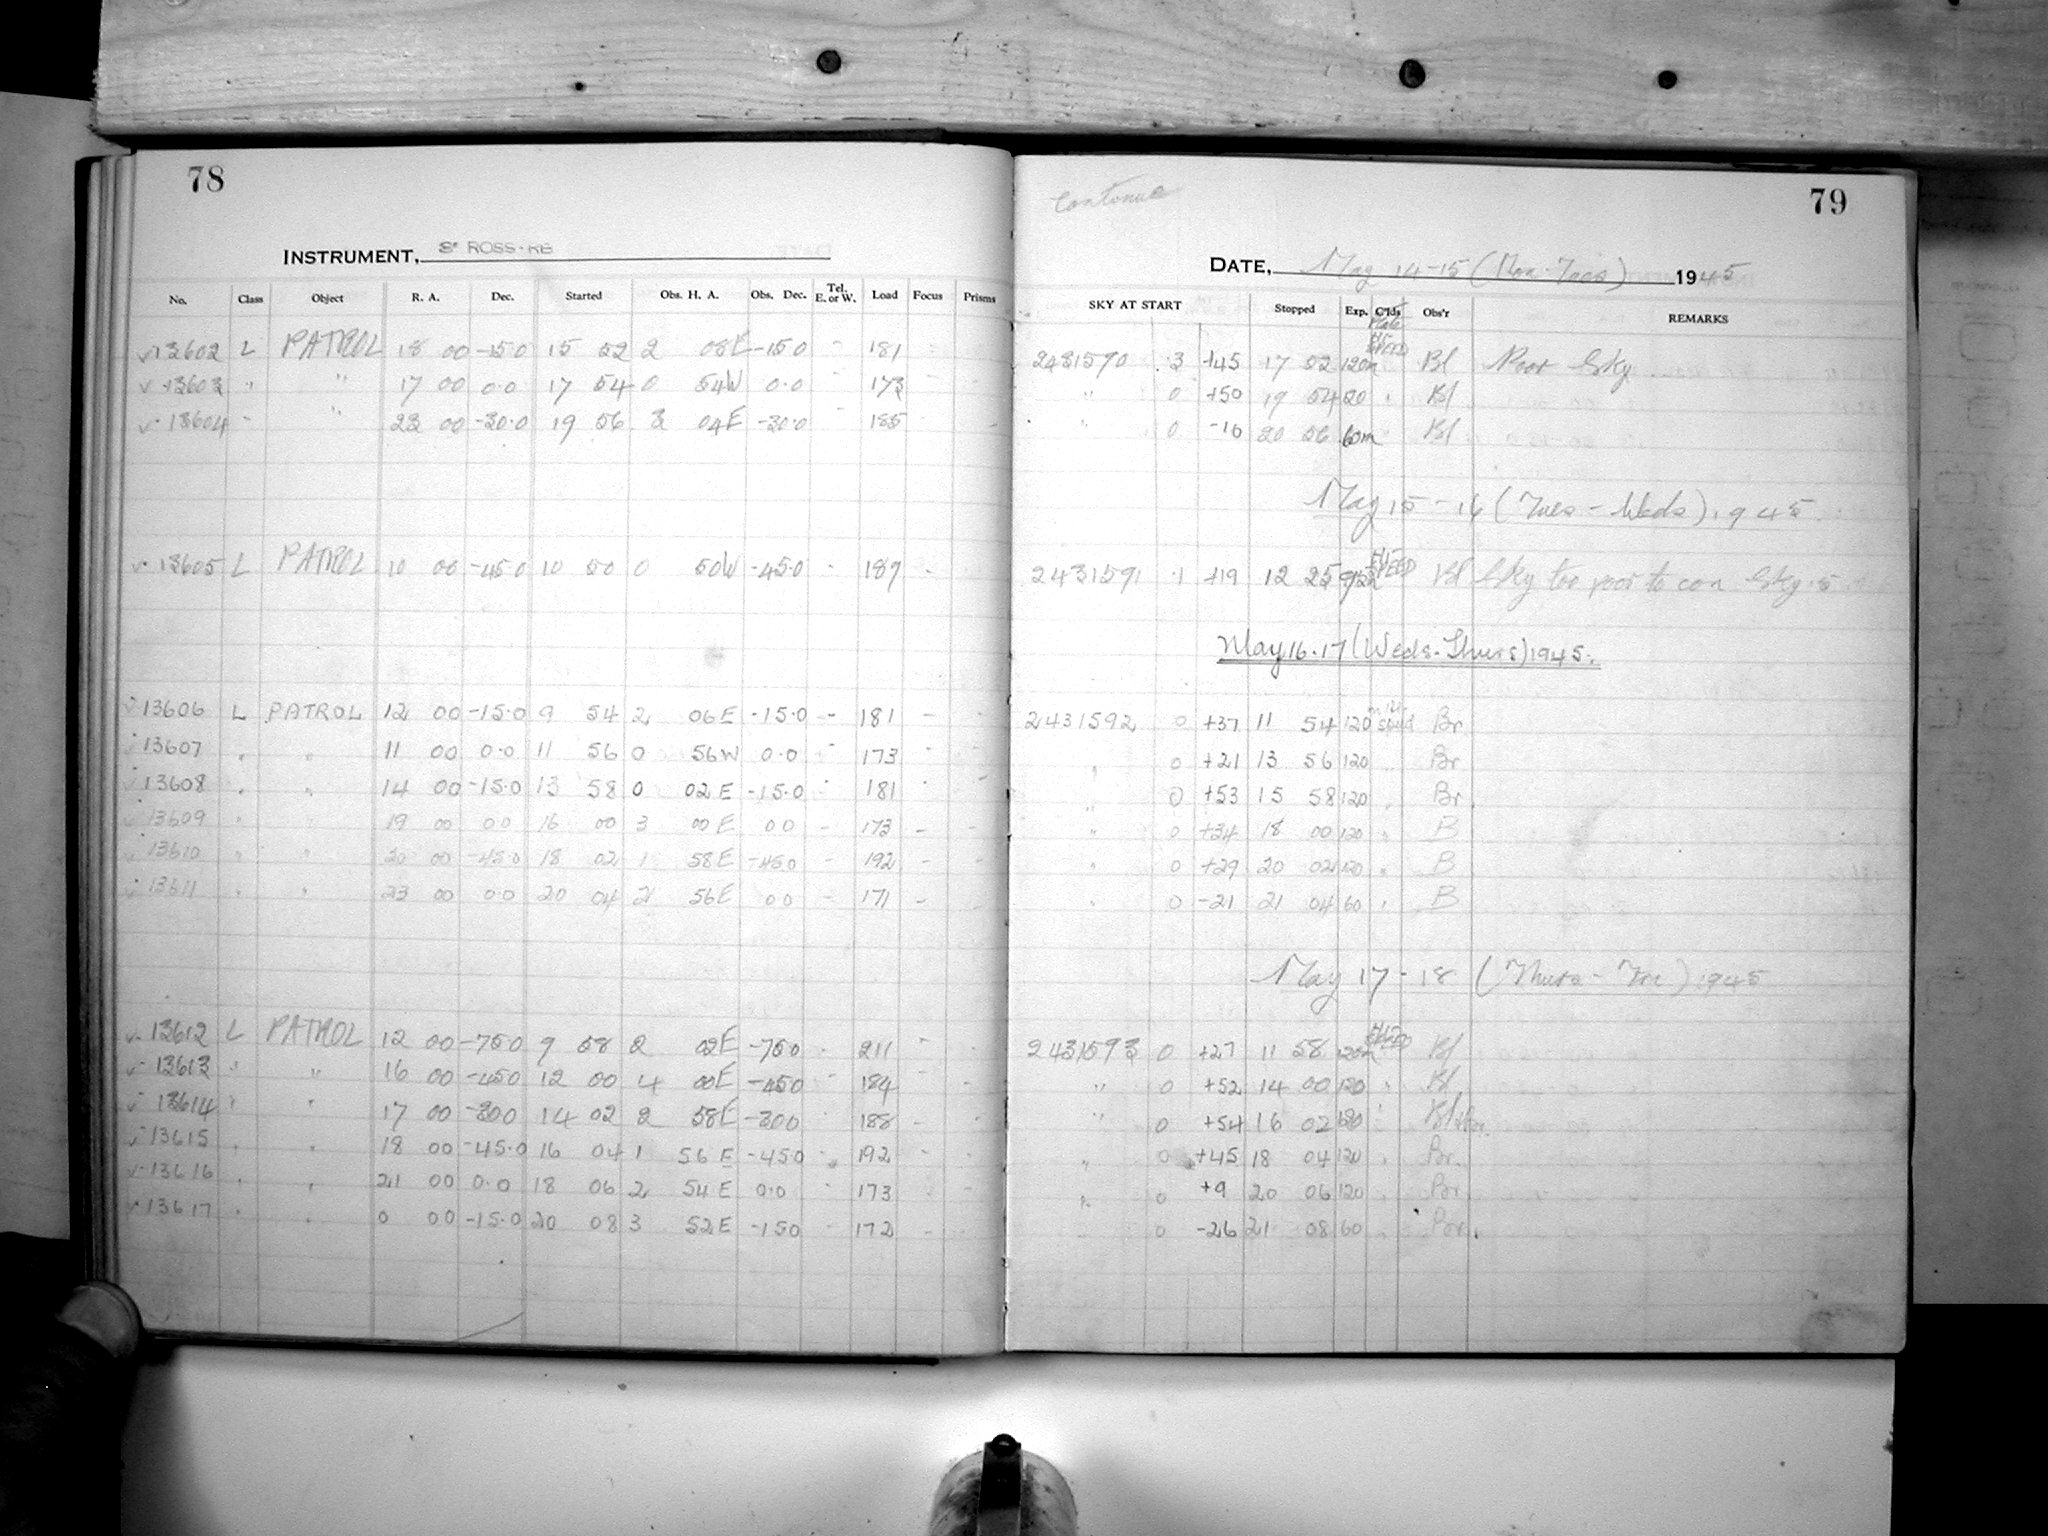 78
INSTRUMENT, 3" ROSS-RB
No. Class Object R. A. Dec. Started Obs. H. A. Obs. Dec. Tel. E. or W. Load Focus Prisms
13602 L PATROL 18 00 -15.0 15 52 2 08E -15.0 - 181
13603 " " 17 00 0.0 17 54 0 54W 0.0 - 173
13604 " " 23 00 -30.0 19 56 3 04E -30.0 - 185
13605 L PATROL 10 00 -45.0 10 50 0 50W -45.0 - 187
13606 L PATROL 12 00 -15.0 9 54 2 06E -15.0 - 181 - -
13607 " " 11 00 0.0 11 56 0 56W 0.0 - 173 - -
13608 " " 14 00 -15.0 13 58 0 02E -15.0 - 181 - -
13609 " " 19 00 0.0 16 00 3 00E 0.0 - 173 - -
13610 " " 20 00 -45.0 18 02 1 58E -45.0 - 192 - -
13611 " " 23 00 0.0 20 04 2 56E 0.0 - 171 - -
13612 L PATROL 12 00 -75.0 9 58 2 02E -75.0 - 211 - -
13613 " " 16 00 -45.0 12 00 4 00E -45.0 - 184 - -
13614 " " 17 00 -30.0 14 02 2 58E -30.0 - 188 - -
13615 " " 18 00 -45.0 16 04 1 56E -45.0 - 192 - -
13616 " " 21 00 0.0 18 06 2 54E 0.0 - 173 - -
13617 " " 0 00 -15.0 20 08 3 52E -15.0 - 172 - -
Continue
79
DATE, May 14-15 (Mon-Tues) 1945
SKY AT START Stopped Exp. C'lds Obs'r REMARKS
2431570 .3 +45 17 52 120m SPEED Bl Poor Sky
" 0 +50 19 54 120 " Bl
" 0 -16 20 56 60m " Bl
May 15-16 (Tues-Weds) 1945
2431591 .1 +19 12 25 95m SPEED Bl Sky too poor to con Sky .5
May 16-17 (Weds-Thurs) 1945.
2431592 0 +37 11 54 120 speed Br
" 0 +21 13 56 120 " Br
" 0 +53 15 58 120 " Br.
" 0 +34 18 00 120 " B
" 0 +29 20 02 120 " B
" 0 -21 21 04 60 " B
May 17-18 (Thurs-Fri) 1945
2431593 0 +27 11 58 120m SPEED Bl
" 0 +52 14 00 120 " Bl
" 0 +54 16 02 120 " Bl
" 0 +45 18 04 120 " Br.
" 0 +9 20 06 120 " Br
" 0 -26 21 08 60 " Br.